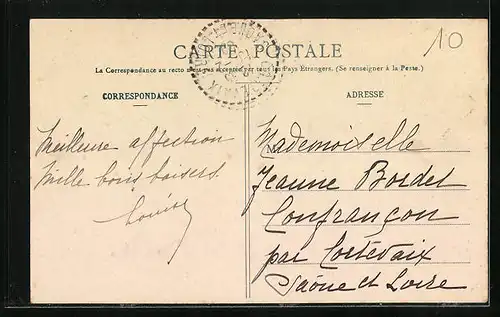 10
CARTE POSTALE
La Correspondance au recto n'est pas acceptée par tous les Pays Étrangers. (Se renseigner à la Poste.)
CORRESPONDANCE
ADRESSE
Meilleure affection
Mille bons baisers
Louise
Mademoiselle
Jeanne Bordet
Confrançon
par Cortevaix
Saône et Loire